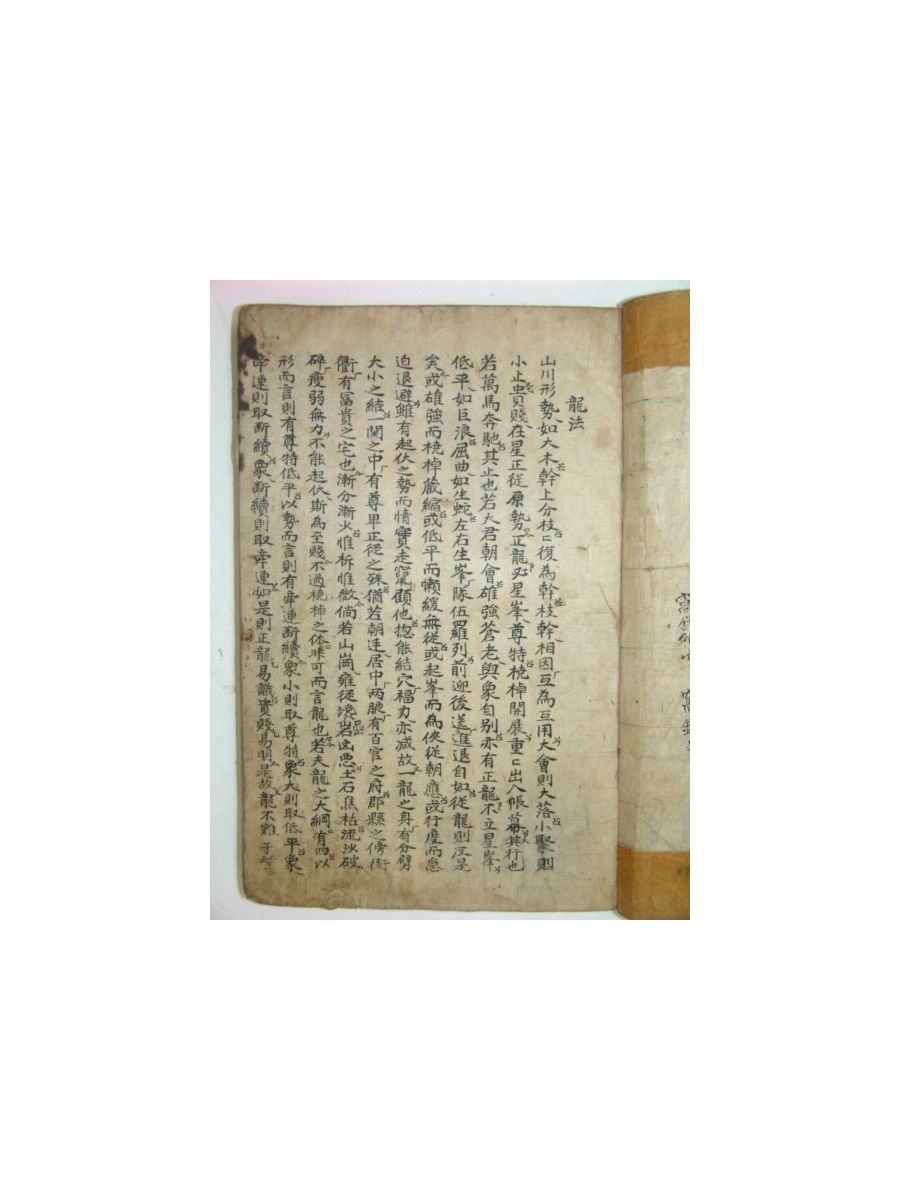 龍法
山川形勢如大木幹上分枝〻復為幹枝幹相因互為互用大會則大落小聚則
小止貴賤在星正從原勢正龍必星峯尊特橈棹開展重〻出入帳幕其行也
若萬馬奔馳其止也若大君朝會雄強蒼老與象自別亦有正龍不立星峯
低平如巨浪屈曲如生蛇左右生峯隊伍羅列前迎後送進退自如從龍則反是
矣或雄強而橈棹蔵縮或低平而懶緩無從或起峯而為俠從朝應或行度而急
迫退避雖有起伏之勢而情實走竄顧他揔能結穴福力亦减故一龍之身有分劈
大小之結一関之中有尊卑正從之殊猶若朝廷居中两腋有百官之府郡縣之傍街
衢有冨貴之宅也漸分漸火惟柝惟微倘若山崗雍従巉岩凶悪土石焦枯流沙破
碎瘦弱無力不能起伏斯為至賤不過橈棹之体非可而言龍也若夫龍之大綱有四以
形而言則有尊特低平以勢而言則有牽連断續衆小則取尊特衆大則取低平衆
牽連則取断續衆断續則取牽連如是則正龍易識貴賤易明是故龍不難于